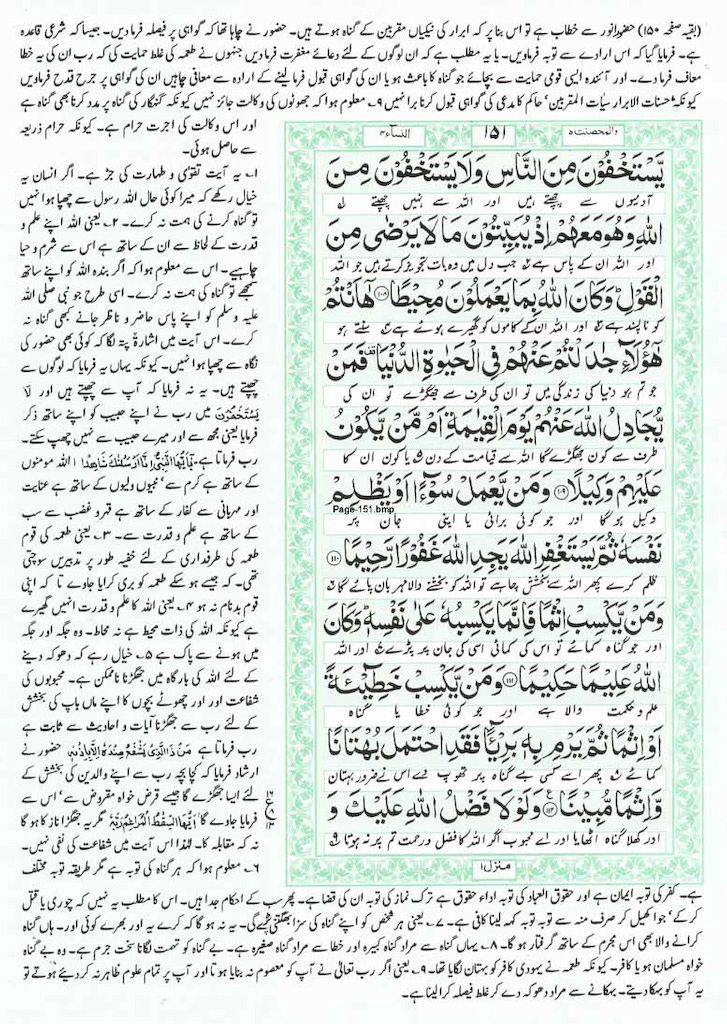 (بقیہ صفحہ ۱۵۰) حضور انور سے خطاب ہے تو اس بنا پر کہ ابرار کی نیکیاں مقربین کے گناہ ہوتے ہیں۔ حضور نے چاہا تھا کہ گواہی پر فیصلہ فرمادیں۔ جیسا کہ شرعی قاعدہ
ہے۔ فرمایا گیا کہ اس ارادے سے توبہ فرمادیں۔ یا یہ مطلب ہے کہ ان لوگوں کے لئے دعائے مغفرت فرمادیں جنہوں نے طعمہ کی غلط حمایت کی کہ رب ان کی یہ خطا
معاف فرما دے۔ اور آئندہ ایسی قومی حمایت سے بچائے جو گناہ کا باعث ہو یا ان کی گواہی قبول فرما لینے کے ارادہ سے معافی چاہیں ان کی گواہی پر جرح قدح فرمادیں
کیونکہ "حسنات الابرار سیات المقربین" حاکم کا مدعی کی گواہی قبول کرنا برا نہیں ۹۔ معلوم ہوا کہ جھوٹوں کی وکالت جائز نہیں کیونکہ گنہگار کی گناہ پر مدد کرنا بھی گناہ ہے
اور اس وکالت کی اجرت حرام ہے۔ کیونکہ حرام ذریعہ
سے حاصل ہوئی۔
والمحصنت ۵
۱۵۱
النساء ۴
يَّسْتَخْفُوْنَ مِنَ النَّاسِ وَلَا يَسْتَخْفُوْنَ مِنَ
آدمیوں سے چھپتے ہیں اور اللہ سے نہیں چھپتے
اللّٰهِ وَهُوَ مَعَهُمْ اِذْ يُبَيِّتُوْنَ مَا لَا يَرْضٰى مِنَ
اور اللہ ان کے پاس ہے جب دل میں وہ بات تجویز کرتے ہیں جو اللہ
الْقَوْلِ ؕ وَكَانَ اللّٰهُ بِمَا يَعْمَلُوْنَ مُحِيْطًا ﴿۱۰۸﴾ هٰۤاَنْتُمْ
کو ناپسند ہے اور اللہ ان کے کاموں کو گھیرے ہوئے ہے سنتے ہو
هٰۤؤُلَآءِ جٰدَلْتُمْ عَنْهُمْ فِى الْحَيٰوةِ الدُّنْيَا فَمَنْ
جو تم ہو دنیا کی زندگی میں تو ان کی طرف سے جھگڑے تو ان کی
يُّجَادِلُ اللّٰهَ عَنْهُمْ يَوْمَ الْقِيٰمَةِ اَمْ مَّنْ يَّكُوْنُ
طرف سے کون جھگڑے گا اللہ سے قیامت کے دن یا کون ان کا
عَلَيْهِمْ وَكِيْلًا ﴿۱۰۹﴾ وَمَنْ يَّعْمَلْ سُوْٓءًا اَوْ يَظْلِمْ
Page-151.bmp
وکیل ہو گا اور جو کوئی برائی یا اپنی جان پر
نَفْسَهٗ ثُمَّ يَسْتَغْفِرِ اللّٰهَ يَجِدِ اللّٰهَ غَفُوْرًا رَّحِيْمًا ﴿۱۱۰﴾
ظلم کرے پھر اللہ سے بخشش چاہے تو اللہ کو بخشنے والا مہربان پائے گا
وَمَنْ يَّكْسِبْ اِثْمًا فَاِنَّمَا يَكْسِبُهٗ عَلٰى نَفْسِهٖ ؕ وَكَانَ
اور جو گناہ کمائے تو اس کی کمائی اسی کی جان پر پڑے اور اللہ
اللّٰهُ عَلِيْمًا حَكِيْمًا ﴿۱۱۱﴾ وَمَنْ يَّكْسِبْ خَطِيْٓئَةً
علم و حکمت والا ہے اور جو کوئی خطا یا گناہ
اَوْ اِثْمًا ثُمَّ يَرْمِ بِهٖ بَرِيْٓئًا فَقَدِ احْتَمَلَ بُهْتَانًا
کمائے پھر اسے کسی بے گناہ پر تھوپ دے اس نے ضرور بہتان
وَّاِثْمًا مُّبِيْنًا ﴿۱۱۲﴾ وَلَوْلَا فَضْلُ اللّٰهِ عَلَيْكَ وَ
اور کھلا گناہ اٹھایا اور اے محبوب اگر اللہ کا فضل و رحمت تم پر نہ ہوتا
منزل ۱
۱۔ یہ آیت تقویٰ و طہارت کی جڑ ہے۔ اگر انسان یہ
خیال رکھے کہ میرا کوئی حال اللہ رسول سے چھپا ہوا نہیں
تو گناہ کرنے کی ہمت نہ کرے۔ ۲۔ یعنی اللہ اپنے علم و
قدرت کے لحاظ سے ان کے ساتھ ہے اس سے شرم و حیا
چاہیے۔ اس سے معلوم ہوا کہ اگر بندہ اللہ کو اپنے ساتھ
سمجھے تو گناہ کی ہمت نہ کرے۔ اسی طرح جو نبی صلی اللہ
علیہ وسلم کو اپنے پاس حاضر و ناظر جانے کبھی گناہ نہ
کرے۔ اس آیت میں اشارۃً پتہ لگا کہ کوئی بھی حضور کی
نگاہ سے چھپا ہوا نہیں۔ کیونکہ یہاں یہ فرمایا کہ لوگوں سے
چھپتے ہیں۔ یہ نہ فرمایا کہ آپ سے چھپتے ہیں اور لَا
يَسْتَخْفُوْنَ میں رب نے اپنے حبیب کو اپنے ساتھ ذکر
فرمایا یعنی مجھ سے اور میرے حبیب سے نہیں چھپ سکتے۔
رب فرماتا ہے۔ يٰٓاَيُّهَا النَّبِىُّ اِنَّآ اَرْسَلْنٰكَ شَاهِدًا۔ اللہ مومنوں
کے ساتھ ہے کرم سے نبیوں ولیوں کے ساتھ ہے عنایت
اور مہربانی سے کفار کے ساتھ ہے قہر و غضب سے سب
کے ساتھ ہے علم و قدرت سے۔ ۳۔ یعنی طعمہ کی قوم
طعمہ کی طرفداری کے لئے خفیہ طور پر تدبیریں سوچتی
تھی۔ کہ جیسے ہو سکے طعمہ کو بری کرایا جاوے تا کہ اپنی
قوم بدنام نہ ہو ۴۔ یعنی اللہ کا علم و قدرت انہیں گھیرے
ہے کیونکہ اللہ کی ذات محیط ہے نہ محاط۔ وہ جگہ اور جگہ
میں ہونے سے پاک ہے ۵۔ خیال رہے کہ دھوکہ دینے
کے لئے اللہ کی بارگاہ میں جھگڑنا ناممکن ہے۔ محبوبوں کی
شفاعت اور اور چھوٹے بچوں کا اپنے ماں باپ کی بخشش
کے لئے رب سے جھگڑنا آیات و احادیث سے ثابت ہے
رب فرماتا ہے مَنْ ذَا الَّذِىْ يَشْفَعُ عِنْدَهٗٓ اِلَّا بِاِذْنِهٖ حضور نے
ارشاد فرمایا کہ کچا بچہ رب سے اپنے والدین کی بخشش کے
لئے ایسا جھگڑے گا جیسے قرض خواہ مقروض سے اس سے
فرمایا جاوے گا اَيُّهَا السِّقْطُ الْمُرَاغِمُ رَبَّهٗ مگر یہ جھگڑا ناز کا ہو گا
نہ کہ مقابلہ کا۔ لہٰذا اس آیت میں شفاعت کی نفی نہیں۔
۶۔ معلوم ہوا کہ ہر گناہ کی توبہ ہے مگر طریقہ توبہ مختلف
ہے۔ کفر کی توبہ ایمان ہے اور حقوق العباد کی توبہ اداء حقوق ہے ترک نماز کی توبہ ان کی قضا ہے۔ پھر سب کے احکام جدا ہیں۔ اس کا مطلب یہ نہیں کہ چوری یا قتل
کر کے' جوا کھیل کر صرف منہ سے توبہ توبہ کہہ لینا کافی ہے۔ ۷۔ یعنی ہر شخص کو اپنے گناہ کی سزا بھگتنی پڑے گی۔ یہ نہ ہو گا کہ کرے یہ اور بھرے کوئی اور۔ ہاں گناہ
کرانے والا بھی اس مجرم کے ساتھ گرفتار ہو گا۔ ۸۔ یہاں گناہ سے مراد گناہ کبیرہ اور خطا سے مراد گناہ صغیرہ ہے۔ بے گناہ کو تہمت لگانا سخت جرم ہے۔ وہ بے گناہ
خواہ مسلمان ہو یا کافر۔ کیونکہ طعمہ نے یہودی کافر کو بہتان لگایا تھا۔ ۹۔ یعنی اگر رب تعالیٰ نے آپ کو معصوم نہ بنایا ہوتا اور آپ پر تمام علوم ظاہر نہ کر دیئے ہوتے تو
یہ آپ کو بہکا دیتے۔ بہکانے سے مراد دھوکہ دے کر غلط فیصلہ کرا لینا ہے۔